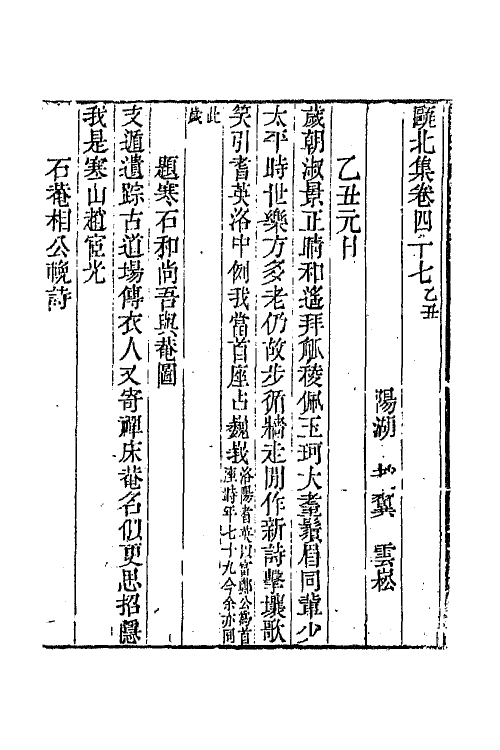 甌北集卷四十七乙丑
陽湖 翼 雲崧
乙丑元日
歲朝淑景正晴和遙拜觚稜佩玉珂大耋鬚眉同輩少
太平時世樂方多老仍故步循牆走閒作新詩擊壤歌
笑引耆英洛中例我當首座占巍峩洛陽耆英以富鄭公為首座時年七十九今余亦同
此歲
題寒石和尚吾與菴圖
支遁遺踪古道場傳衣人又寄禪床菴名似更思招隱
我是寒山趙宧光
石菴相公輓詩